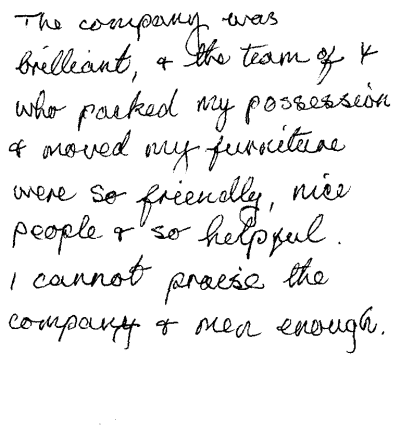 The company was
brilliant, & the team of 4
who packed my possession
& moved my furniture
were so friendly, nice
people & so helpful.
I cannot praise the
company & men enough.